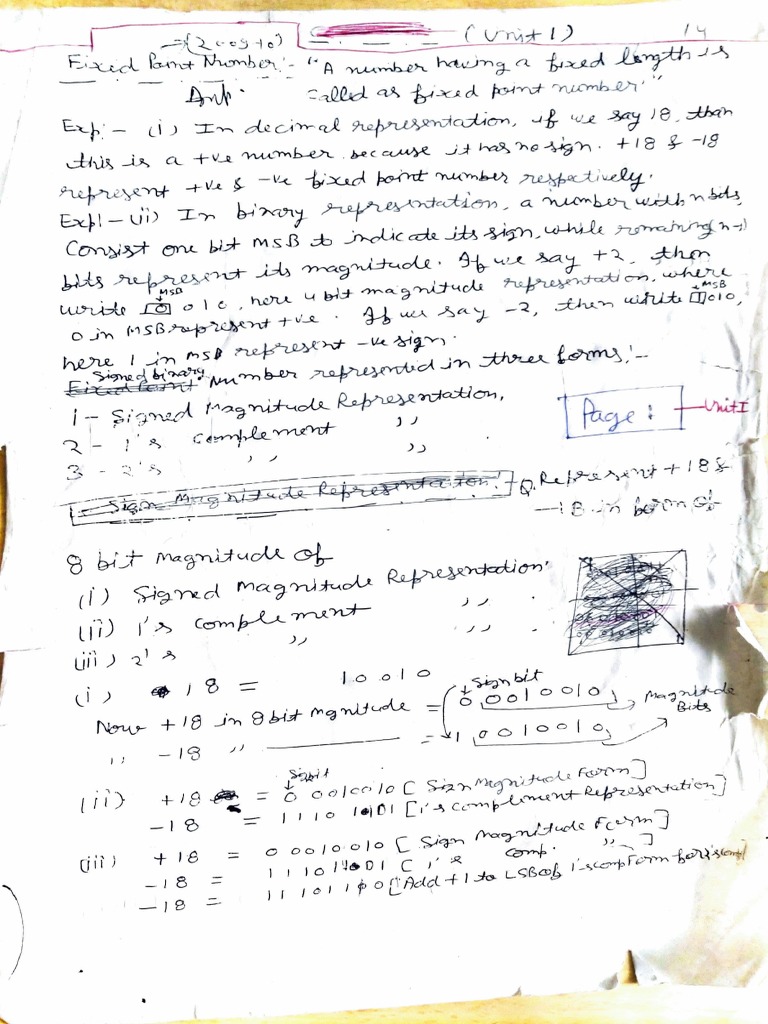 (Unit 1) 14
⇒(2009-10)
Fixed Point Number:- "A number having a fixed length is
Ans. called as fixed point number."
Exp:- (i) In decimal representation, if we say 18, than
this is a +ve number because it has no sign. +18 & -18
represent +ve & -ve fixed point number respectively.
Expl-(ii) In binary representation, a number with n bits,
Consist one bit MSB to indicate its sign, while remaining (n-1)
bits represent its magnitude. If we say +2, then
MSB MSB
write 0 010, here 4 bit magnitude representation, where
0 in MSB represent +ve. If we say -2, then write 1 010,
here 1 in MSB represent -ve sign.
Signed binary
Fixed Point Number represented in three forms:-
1- Signed Magnitude Representation,
2- 1's Complement ,,
3- 2's ,, ,,
Page 1 Unit I
Sign Magnitude Representation:- Q. Represent +18 &
-18 in form of
8 bit magnitude of
(i) Signed Magnitude Representation
(ii) 1's complement ,,
(iii) 2's ,, ,,
(i) 18 = 10010
Sign bit
Now +18 in 8 bit magnitude = 0 0010010 Magnitude
Bits
,, -18 ,, = 1 0010010
(ii) +18 = 0 0010010 [Sign Magnitude Form]
-18 = 1110 1101 [1's complement Representation]
(iii) +18 = 0 0010010 [Sign Magnitude Form]
-18 = 11101101 [1's comp. ,, ]
-18 = 11101110 [Add +1 to LSB of 1's comp Form